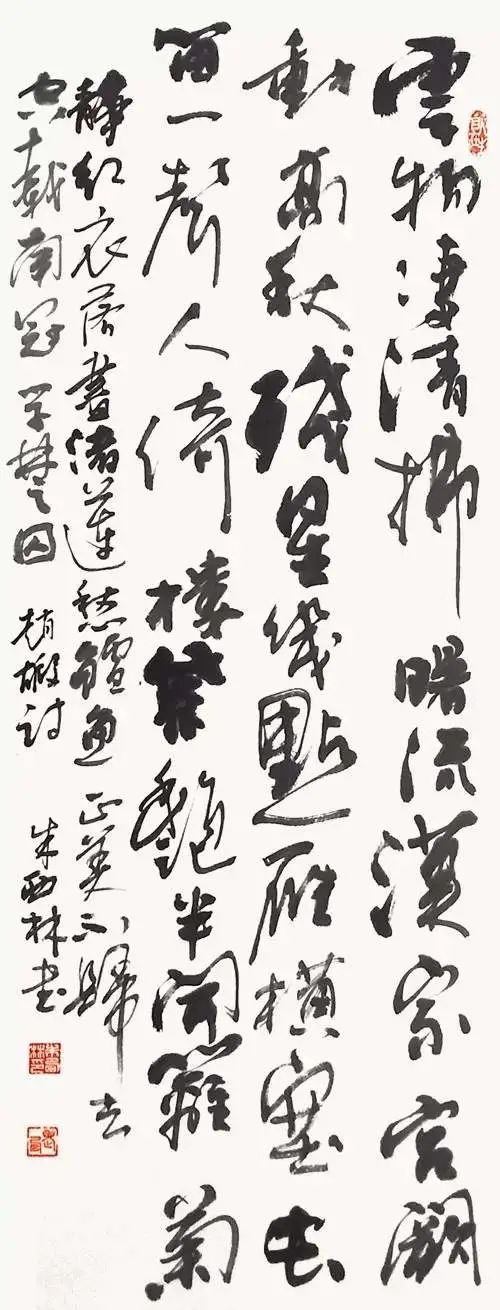 雲物淒清拂曙流漢家宮闕
動高秋殘星幾點雁橫塞長
笛一聲人倚樓紫艷半開籬菊
靜紅衣落盡渚蓮愁鱸魚正美不歸去
空戴南冠學楚囚 趙嘏詩 朱西林書